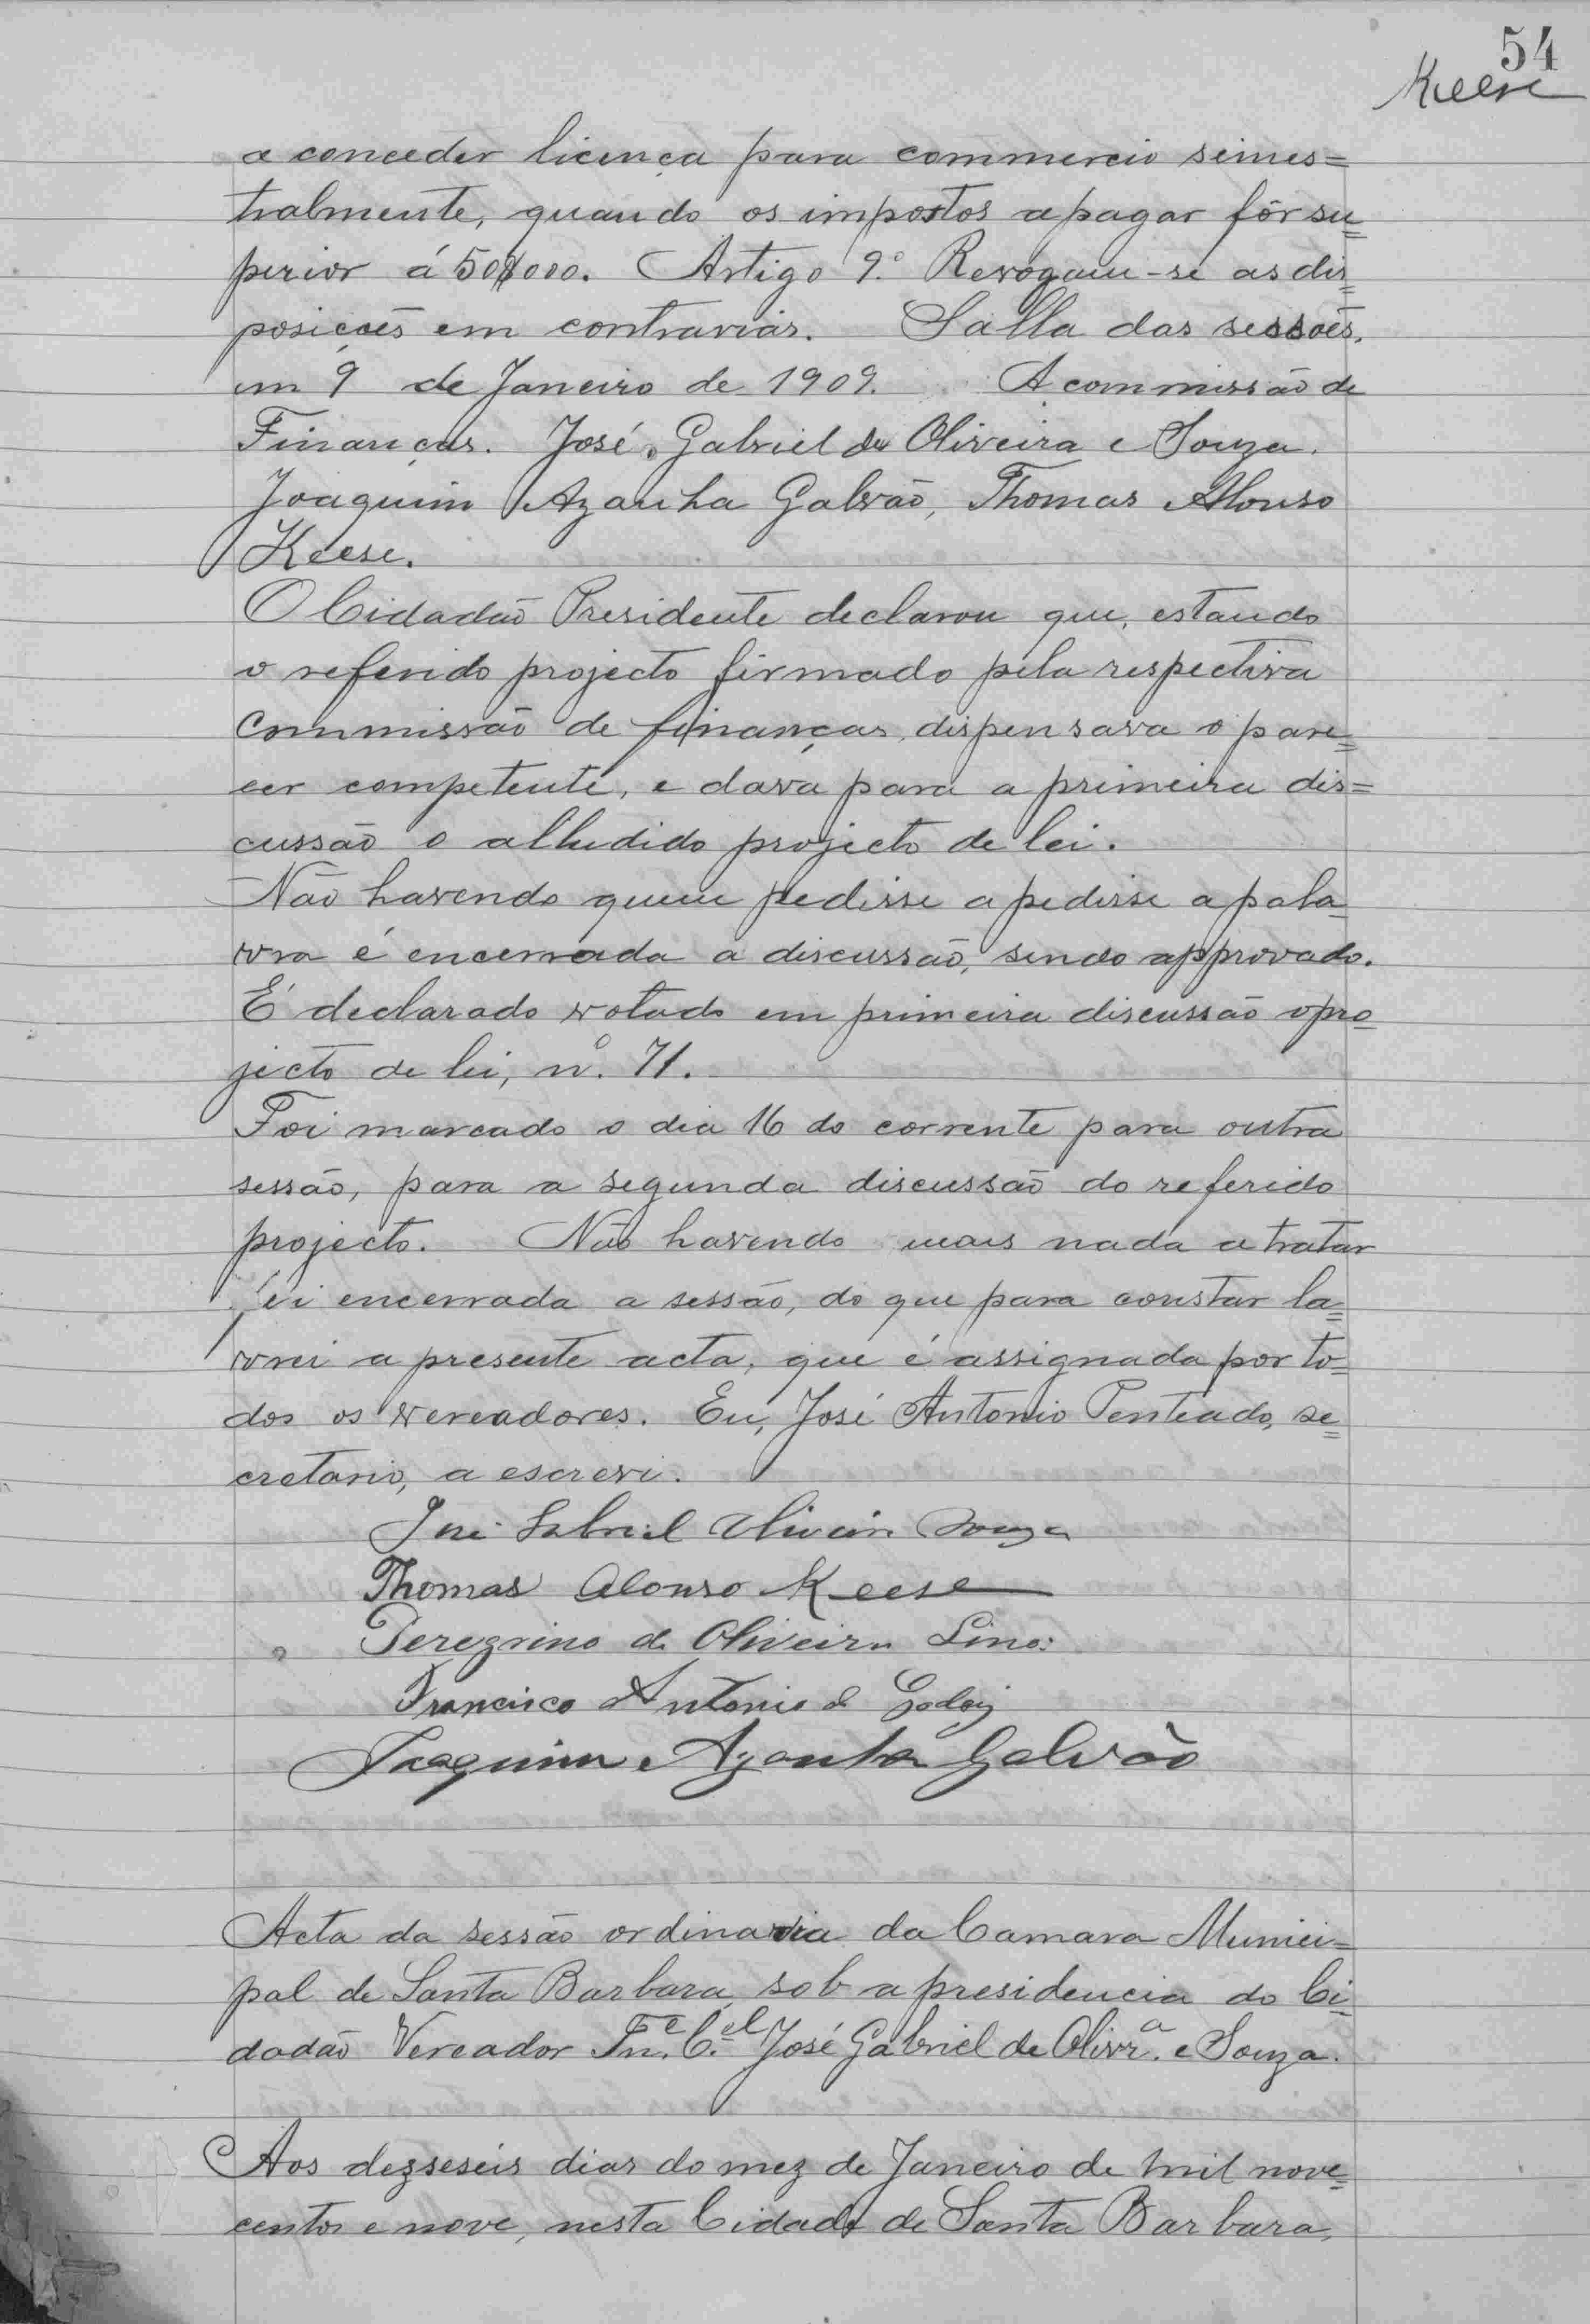 54
Keese
a conceder licença para commercio semes=
tralmente, quando os impostos a pagar fôr su=
perior á 50$000. Artigo 9.º Revogam-se as dis=
posições em contrarias. Salla das sessoẽs,
em 9 de Janeiro de 1909. A commissão de
Finanças. José Gabriel de Oliveira e Souza.
Joaquim Azanha Galvão, Thomas Alonso
Keese.
O Cidadão Presidente declarou que, estando
o referido projecto firmado pela respectiva
Commissão de finanças, dispensava o pare=
cer competente, e dava para a primeira dis=
cussão o alludido projecto de lei.
Não havendo quem pedisse a pedisse a pala=
vra é encerrada a discussão, sendo approvado.
É declarado votado em primeira discussão o pro=
jecto de lei, nº. 71.
Foi marcado o dia 16 do corrente para outra
sessão, para a segunda discussão do referido
projecto. Não havendo mais nada a tratar
foi encerrada a sessão, do que para constar la=
vrei a presente acta, que é assignada por to=
dos os vereadores. Eu, José Antonio Penteado, se=
cretario, a escrevi.
José Gabriel Oliveira Souza
Thomas Alonso Keese
Peregrino de Oliveira Lino
Francisco Antonio de Godoy
Joaquim Azanha Galvão
Acta da sessão ordinaria da Camara Munici=
pal de Santa Barbara, sob a presidencia do Ci=
dadão Vereador Tn.e C.el José Gabriel de Olivr.a e Souza.
Aos dezseseis dias do mez de Janeiro de mil nove=
centos e nove, nesta Cidade de Santa Barbara,